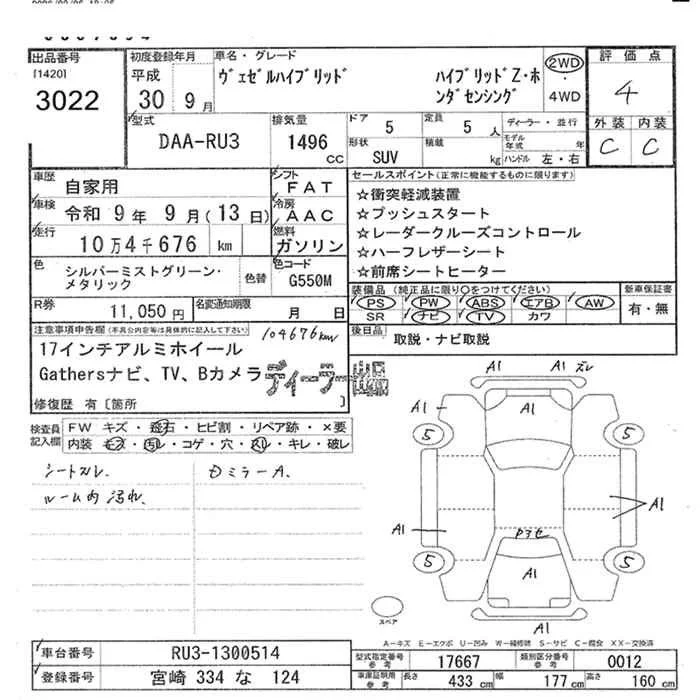 出品番号
[1420]
3022
初度登録年月
平成
30 9月
車名・グレード
ヴェゼルハイブリッド
ハイブリッドZ・ホ
ンダセンシング
2WD
4WD
評価点
4
外装 内装
C C
型式
DAA-RU3
排気量
1496
CC
ドア
5
定員
5 人
形状
SUV
積載
kg
ディーラー・並行
モデル
年式 年
ハンドル 左・右
車歴
自家用
車検
令和 9年 9月(13日)
走行
10万4千676 km
色
シルバーミストグリーン・
メタリック
色替
シフト
FAT
冷房
AAC
燃料
ガソリン
色コード
G550M
R券
11,050円
名変通知期限
月 日
セールスポイント(正常に機能するものに限ります)
☆衝突軽減装置
☆プッシュスタート
☆レーダークルーズコントロール
☆ハーフレザーシート
☆前席シートヒーター
装備品(純正品に限り○をつけてください)
PS PW ABS エアB AW
SR ナビ TV カワ
新車保証書
有・無
後日品
取説・ナビ取説
注意事項申告欄(不具合内容等は具体的に記入して下さい)
104676km
17インチアルミホイール
Gathersナビ、TV、Bカメラ
ディーラー
修復歴 有〔箇所 〕
検査員
記入欄
FW キズ・飛石・ヒビ割・リペア跡・×要
内装 キズ・汚レ・コゲ・穴・スレ・キレ・破レ
シートスレ
ルーム内汚れ
DミラーA.
A1 A1 ズレ
A1
A1
5 5
A1
A1
5 5
A1
A1
スペア
A-キズ E-エクボ U-凹み W-補修跡 S-サビ C-腐食 XX-交換済
車台番号
RU3-1300514
登録番号
宮崎 334 な 124
型式指定番号
参考
17667
類別区分番号
参考
0012
車庫証明用
参考
長さ 433 cm 幅 177 cm 高さ 160 cm